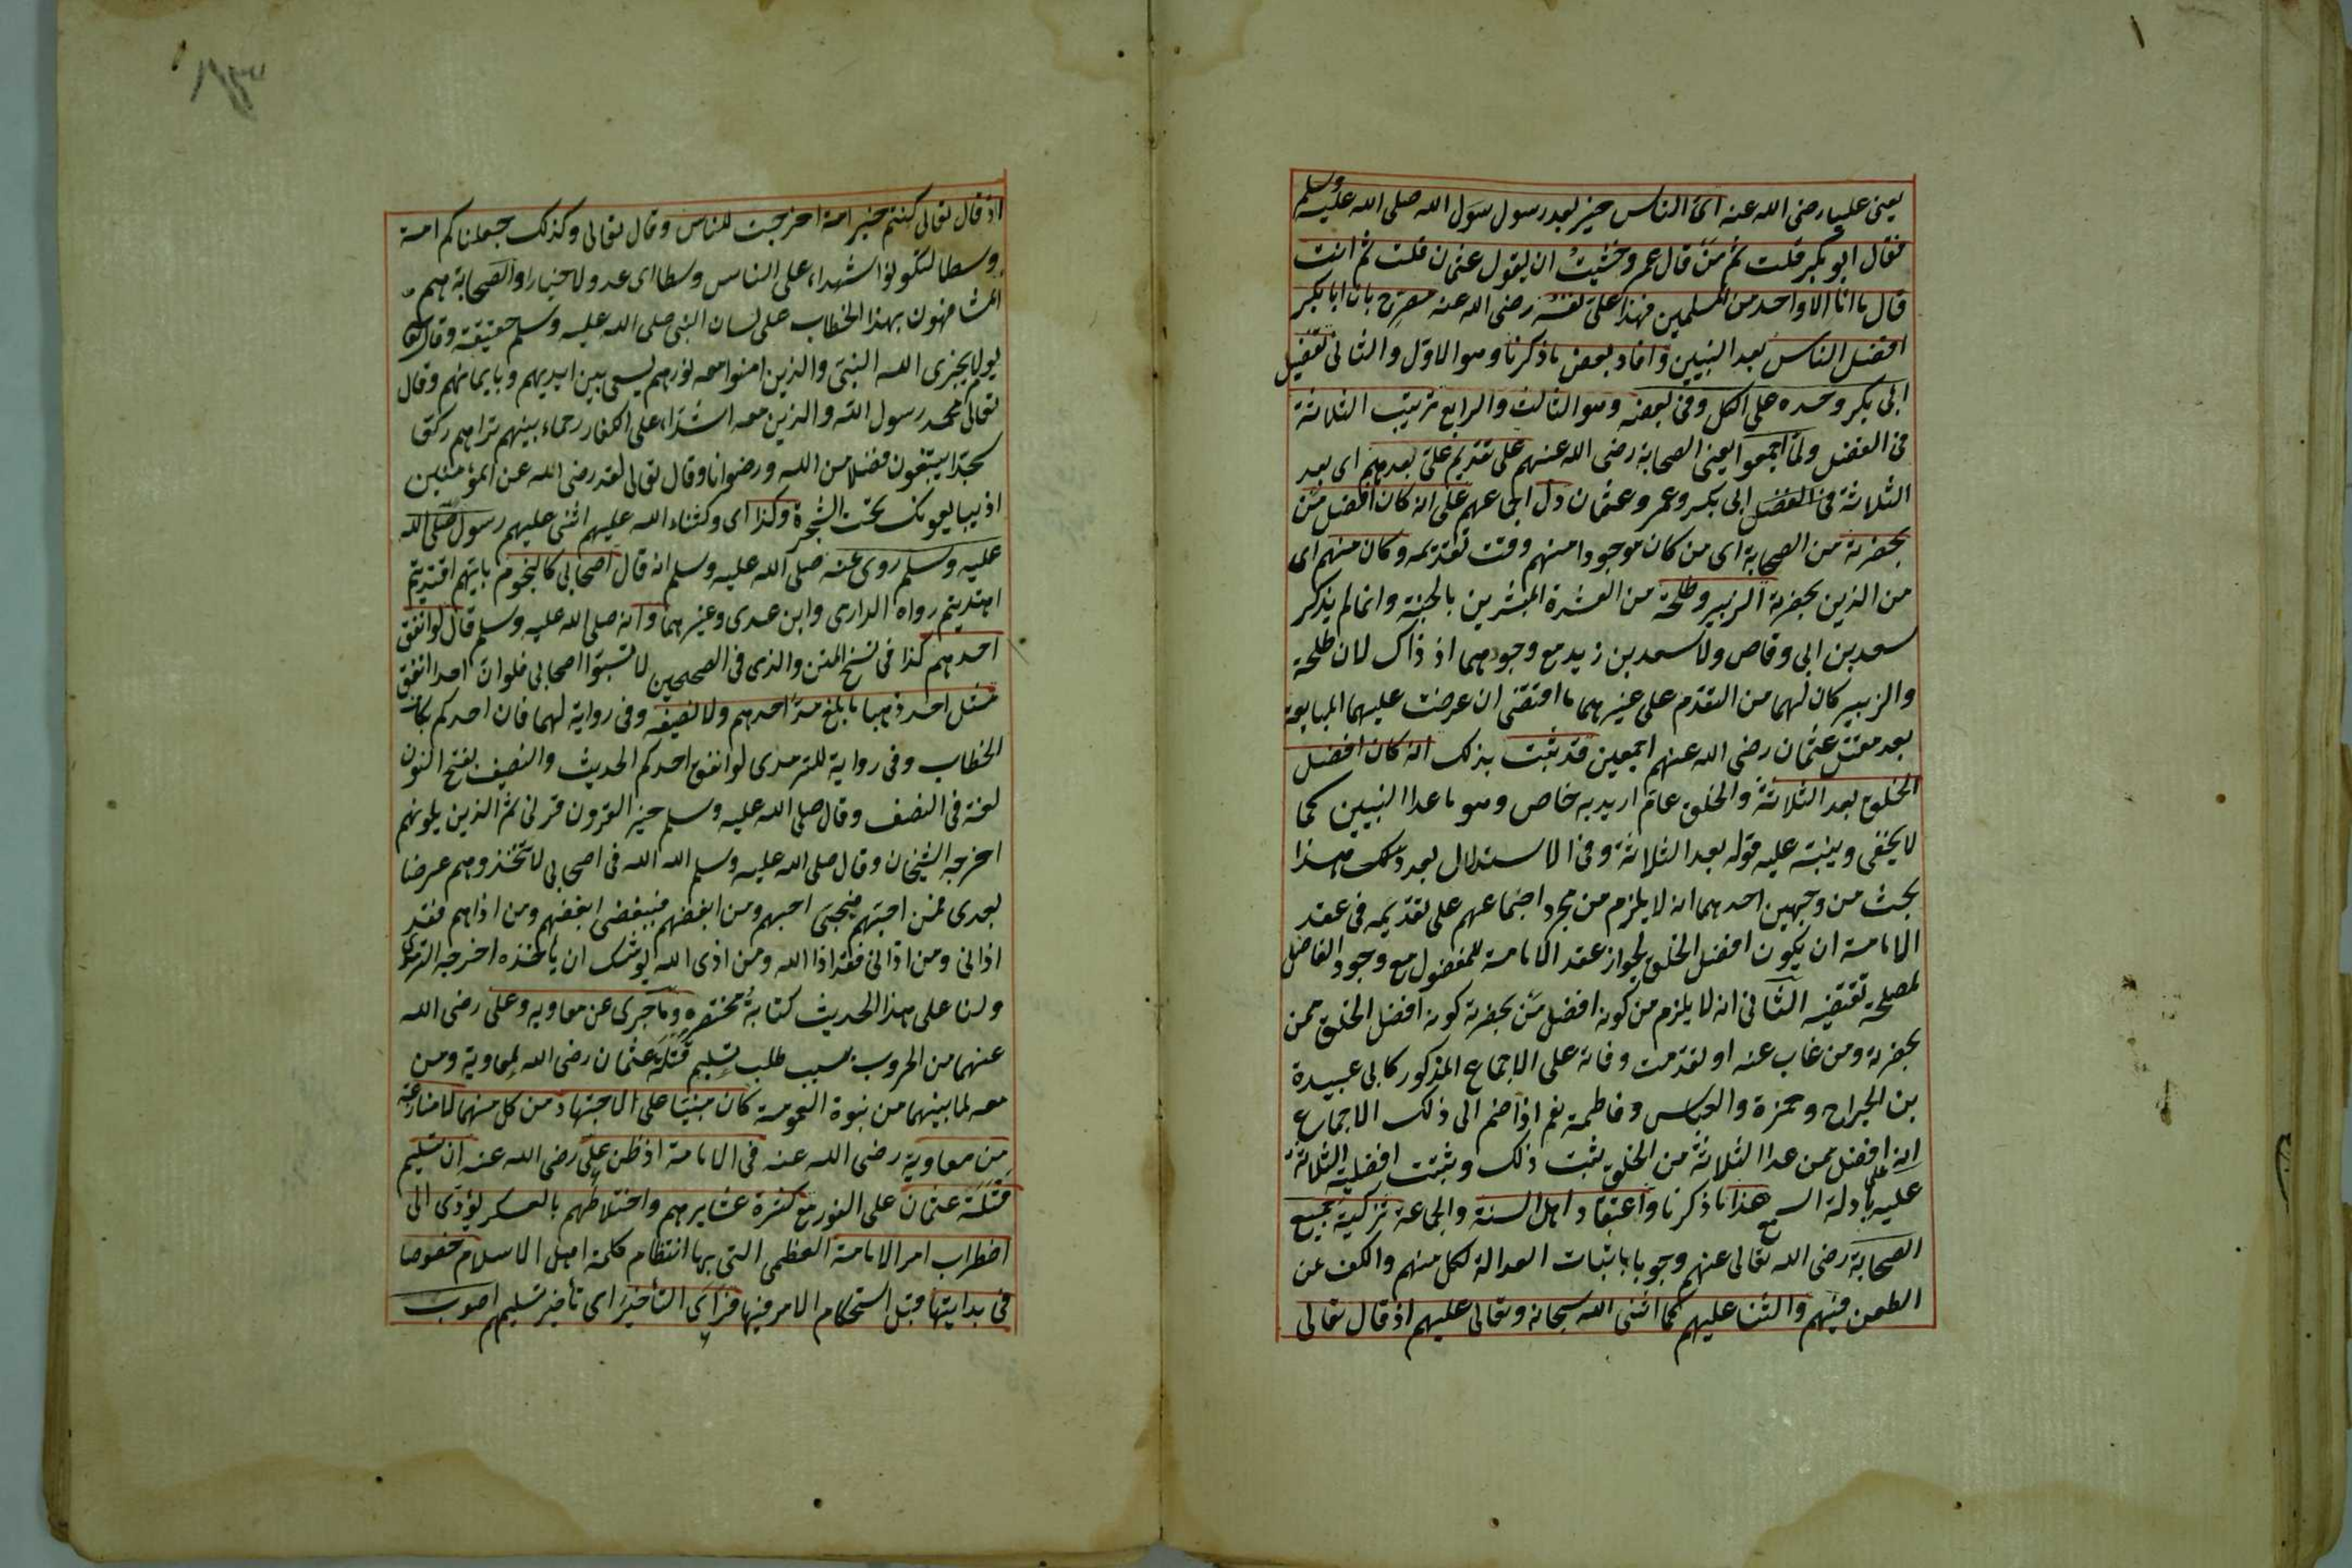 يعنى عليا رضى الله عنه اىّ الناس خير بعد رسول الله صلى الله عليه وسلم
فقال ابو بكر قلت ثم مَن قال عمر وخشيتُ ان يقول عثمان قلت ثم انت
قال ما انا الا واحد من المسلمين فهذا علىّ نفسُه رضى الله عنه مصرّح بان ابا بكر
افضل الناس بعد النبيين وافاد بعض ما ذكرنا وهو الاول والثانى تفضيل
ابى بكر وحده على الكل وفى بعضه وهو الثالث والرابع ترتيب الثلاثة
فى الفضل ولمّا اجمعوا يعنى الصحابة رضى الله عنهم على تقديم علىّ بعدهم اى بعد
الثلاثة فى الفضل ابى بكر وعمر وعثمان دل اجماعهم على انه كان افضل مَن
بحضرته من الصحابة اى من كان موجودا منهم وقت تقديمه وكان منهم اى
من الذين بحضرته الزبير وطلحة من العشرة المبشرين بالجنة وانما لم يذكر
سعد بن ابى وقاص ولا سعد بن زيد مع وجودهما اذ ذاك لان طلحة
والزبير كان لهما من التقدم على غيرهما ما اقتضى ان عرضت عليهما المبايعة
بعد مقتل عثمان رضى الله عنهم اجمعين فقد ثبت بذلك انه كان افضل
الخلق بعد الثلاثة والخلق عام اريد به خاص وهو ما عدا النبيين كما
لا يخفى وينبّه عليه قوله بعد الثلاثة وفى الاستدلال بعد ذلك بهذا
بحث من وجهين احدهما انه لا يلزم من مجرد اجتماعهم على تقديمه فى عقد
الامامة ان يكون افضل الخلق لجواز عقد الامامة للمفضول مع وجود الفاضل
لمصلحة تقتضيه الثانى انه لا يلزم من كونه افضل مَن بحضرته كونه افضل الخلق ممن
بحضرته ومن غاب عنه او تقدمت وفاته على الاجماع المذكور كابى عبيدة
بن الجراح وحمزة والعباس وفاطمة نعم اذا ضم الى ذلك الاجماع
انه افضل ممن عدا الثلاثة من الخلق ثبت ذلك وثبتت افضلية الثلاثة
عليه بادلة السمع هذا ما ذكرنا واعتقاد اهل السنة والجماعة تزكية جميع
الصحابة رضى الله تعالى عنهم وجوبا باثبات العدالة لكل منهم والكف عن
الطعن فيهم والثنا عليهم كما اثنى الله سبحانه وتعالى عليهم اذ قال تعالى
اذ قال تعالى كنتم خير امة اخرجت للناس وقال تعالى وكذلك جعلناكم امة
وسطا لتكونوا شهداء على الناس وسطا اى عدولا خيارا والصحابة هم
المشافهون بهذا الخطاب على لسان النبى صلى الله عليه وسلم حقيقة وقال تعالى
يوم لا يخزى الله النبى والذين امنوا معه نورهم يسعى بين ايديهم وبايمانهم وقال
تعالى محمد رسول الله والذين معه اشدّاء على الكفار رحماء بينهم تراهم ركعا
سجدا يبتغون فضلا من الله ورضوانا وقال تعالى لقد رضى الله عن المؤمنين
اذ يبايعونك تحت الشجرة وكذا اى وكثناء الله عليهم اثنى عليهم رسول صلى الله
عليه وسلم روى عنه صلى الله عليه وسلم انه قال اصحابى كالنجوم بايّهم اقتديتم
اهتديتم رواه الدارى وابن عدى وغيرهما وانه صلى الله عليه وسلم قال لو انفق
احدهم كذا فى نسخ المتن والذى فى الصحيحين لا تسبّوا اصحابى فلو ان احدا انفق
مثل احد ذهبا ما بلغ مدّ احدهم ولا نصيفه وفى رواية لهما فان احدكم بكاف
الخطاب وفى رواية للترمذى لو انفق احدكم الحديث والنصيف بفتح النون
لغة فى النصف وقال صلى الله عليه وسلم خير القرون قرنى ثم الذين يلونهم
اخرجه الشيخان وقال صلى الله عليه وسلم الله الله فى اصحابى لا تتخذوهم عرضا
بعدى فمن احبّهم فبحبّى احبهم ومن ابغضهم فببغضى ابغضهم ومن اذاهم فقد
اذانى ومن اذانى فقد اذا الله ومن اذى الله يوشك ان يأخذه اخرجه الترمذى
ولنا على هذا الحديث كتابة مختصره وما جرى عن معاويه وعلى رضى الله
عنهما من الحروب بسبب طلب تسليم قَتَلَة عثمان رضى الله لمعاوية ومن
معه لما بينهما من بنوة العمومة كان مبنيّا على الاجتهاد من كل منهما لا منازعة
من معاوية رضى الله عنه فى الامامة اذ ظن علىّ رضى الله عنه ان تسليم
قَتَلَة عثمان على الفور مع كثرة عشايرهم واختلاطهم بالعسكر يؤدى الى
اضطراب امر الامامة العظمى التى بها انتظام كلمة اهل الاسلام خصوصا
فى بدايتها قبل استحكام الامر فيها فراَى التأخير اى تأخير تسليمهم اصوب